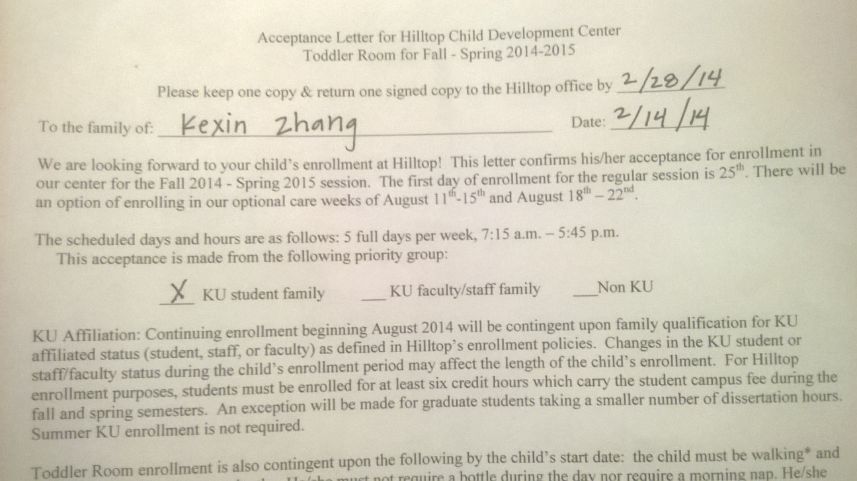 Acceptance Letter for Hilltop Child Development Center
Toddler Room for Fall - Spring 2014-2015
Please keep one copy & return one signed copy to the Hilltop office by 2/28/14
To the family of: Kexin Zhang Date: 2/14/14
We are looking forward to your child's enrollment at Hilltop! This letter confirms his/her acceptance for enrollment in
our center for the Fall 2014 - Spring 2015 session. The first day of enrollment for the regular session is 25th. There will be
an option of enrolling in our optional care weeks of August 11th-15th and August 18th – 22nd.
The scheduled days and hours are as follows: 5 full days per week, 7:15 a.m. – 5:45 p.m.
This acceptance is made from the following priority group:
X KU student family ___ KU faculty/staff family ___Non KU
KU Affiliation: Continuing enrollment beginning August 2014 will be contingent upon family qualification for KU
affiliated status (student, staff, or faculty) as defined in Hilltop's enrollment policies. Changes in the KU student or
staff/faculty status during the child's enrollment period may affect the length of the child's enrollment. For Hilltop
enrollment purposes, students must be enrolled for at least six credit hours which carry the student campus fee during the
fall and spring semesters. An exception will be made for graduate students taking a smaller number of dissertation hours.
Summer KU enrollment is not required.
Toddler Room enrollment is also contingent upon the following by the child's start date: the child must be walking* and
must not require a bottle during the day nor require a morning nap. He/she